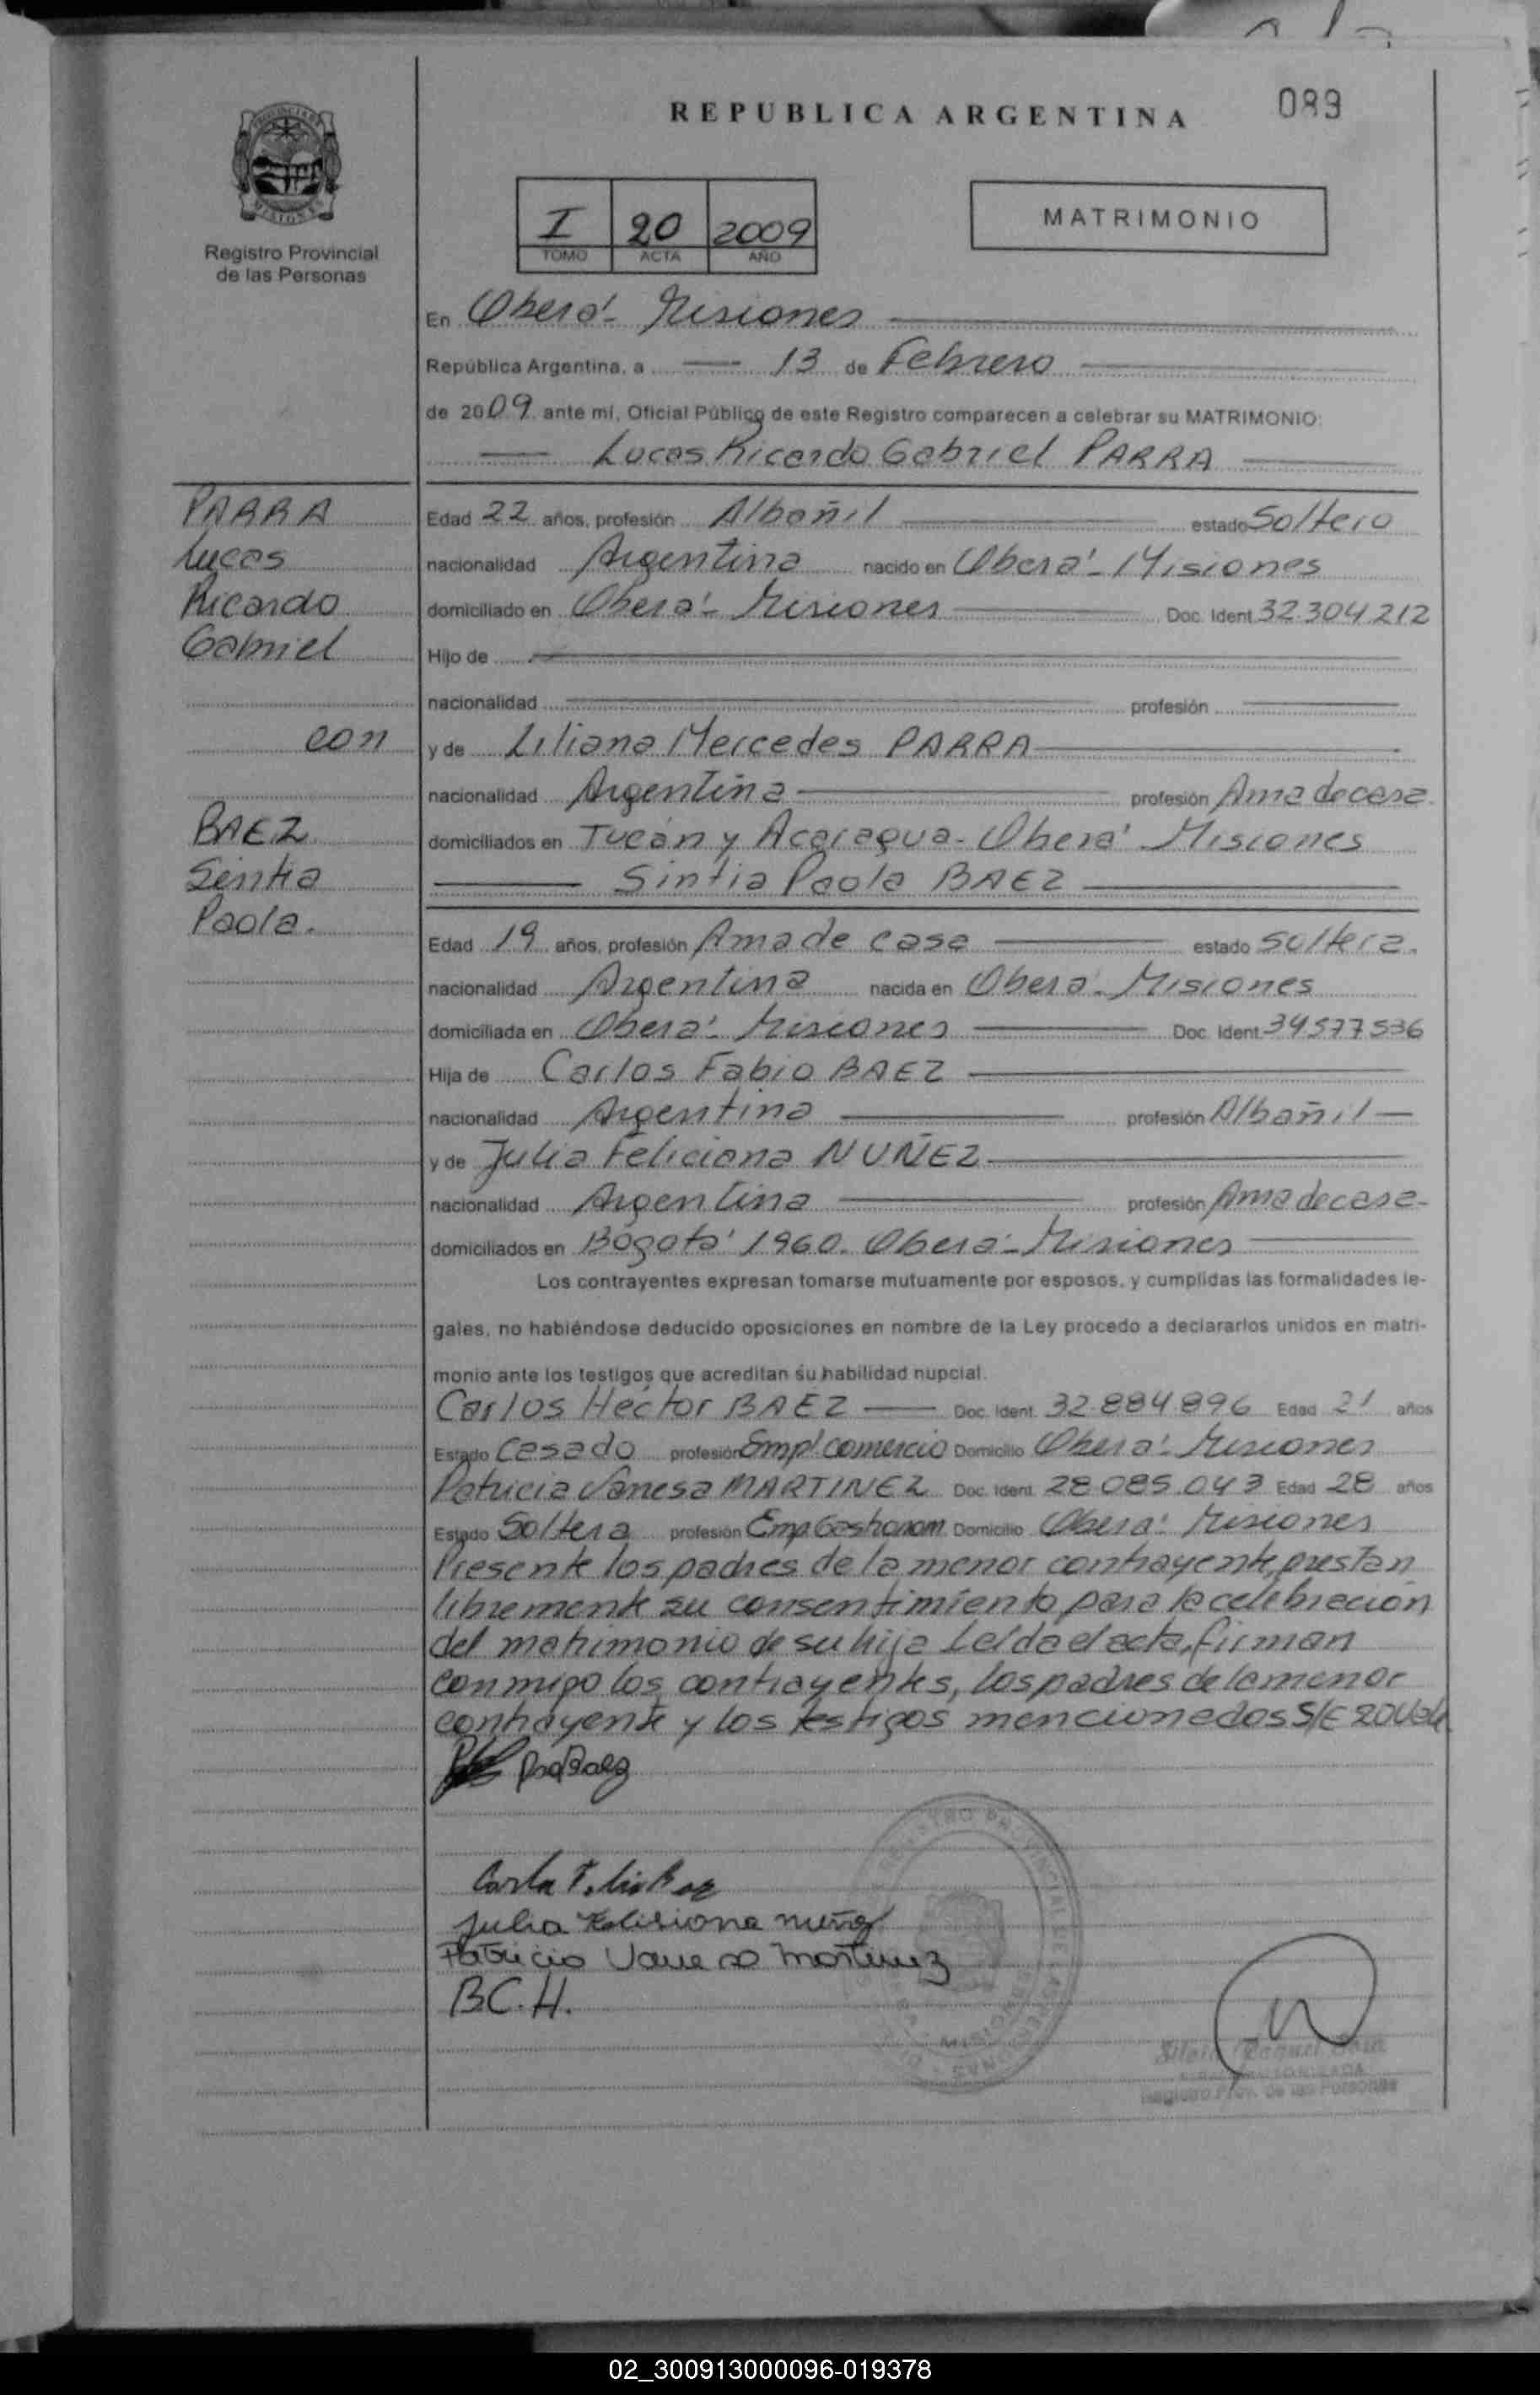 REPUBLICA ARGENTINA
089
PROVINCIA DE
MISIONES
Registro Provincial
de las Personas
I 20 2009
TOMO ACTA AÑO
MATRIMONIO
En Oberá - Misiones
República Argentina, a 13 de Febrero
de 2009 ante mí, Oficial Público de este Registro comparecen a celebrar su MATRIMONIO:
Lucas Ricardo Gabriel PARRA
PARRA
Lucas
Ricardo
Gabriel
con
BAEZ
Sintia
Paola.
Edad 22 años, profesión Albañil estado Soltero
nacionalidad Argentina nacido en Oberá - Misiones
domiciliado en Oberá - Misiones Doc. Ident. 32.304.212
Hijo de
nacionalidad profesión
y de Liliana Mercedes PARRA
nacionalidad Argentina profesión Ama de casa
domiciliados en Tucán y Acaragua - Oberá Misiones
Sintia Paola BAEZ
Edad 19 años, profesión Ama de casa estado soltera.
nacionalidad Argentina nacida en Oberá - Misiones
domiciliada en Oberá - Misiones Doc. Ident. 34577536
Hija de Carlos Fabio BAEZ
nacionalidad Argentina profesión Albañil
y de Julia Feliciana NUÑEZ
nacionalidad Argentina profesión Ama de casa
domiciliados en Bogotá 1960. Oberá - Misiones
Los contrayentes expresan tomarse mutuamente por esposos, y cumplidas las formalidades le-
gales, no habiéndose deducido oposiciones en nombre de la Ley procedo a declararlos unidos en matri-
monio ante los testigos que acreditan su habilidad nupcial.
Carlos Héctor BAEZ Doc. Ident. 32.884.896 Edad 21 años
Estado Casado profesión Empl. comercio Domicilio Oberá - Misiones
Patricia Vanesa MARTINEZ Doc. Ident. 28.085.043 Edad 28 años
Estado Soltera profesión Emp Gastronom Domicilio Oberá - Misiones
Presente los padres de la menor contrayente, prestan
libremente su consentimiento para la celebración
del matrimonio de su hija Leída el acta, firman
conmigo los contrayentes, los padres de la menor
contrayente y los testigos mencionados S/E 20 Vale
Julia Felisiana nuñez
Patricia Vanesa Martinez
B.C.H.
REGISTRO PROVINCIAL DE LAS PERSONAS
MISIONES
Raquel
AUTORIZADA
Registro Prov. de las Personas
02_300913000096-019378